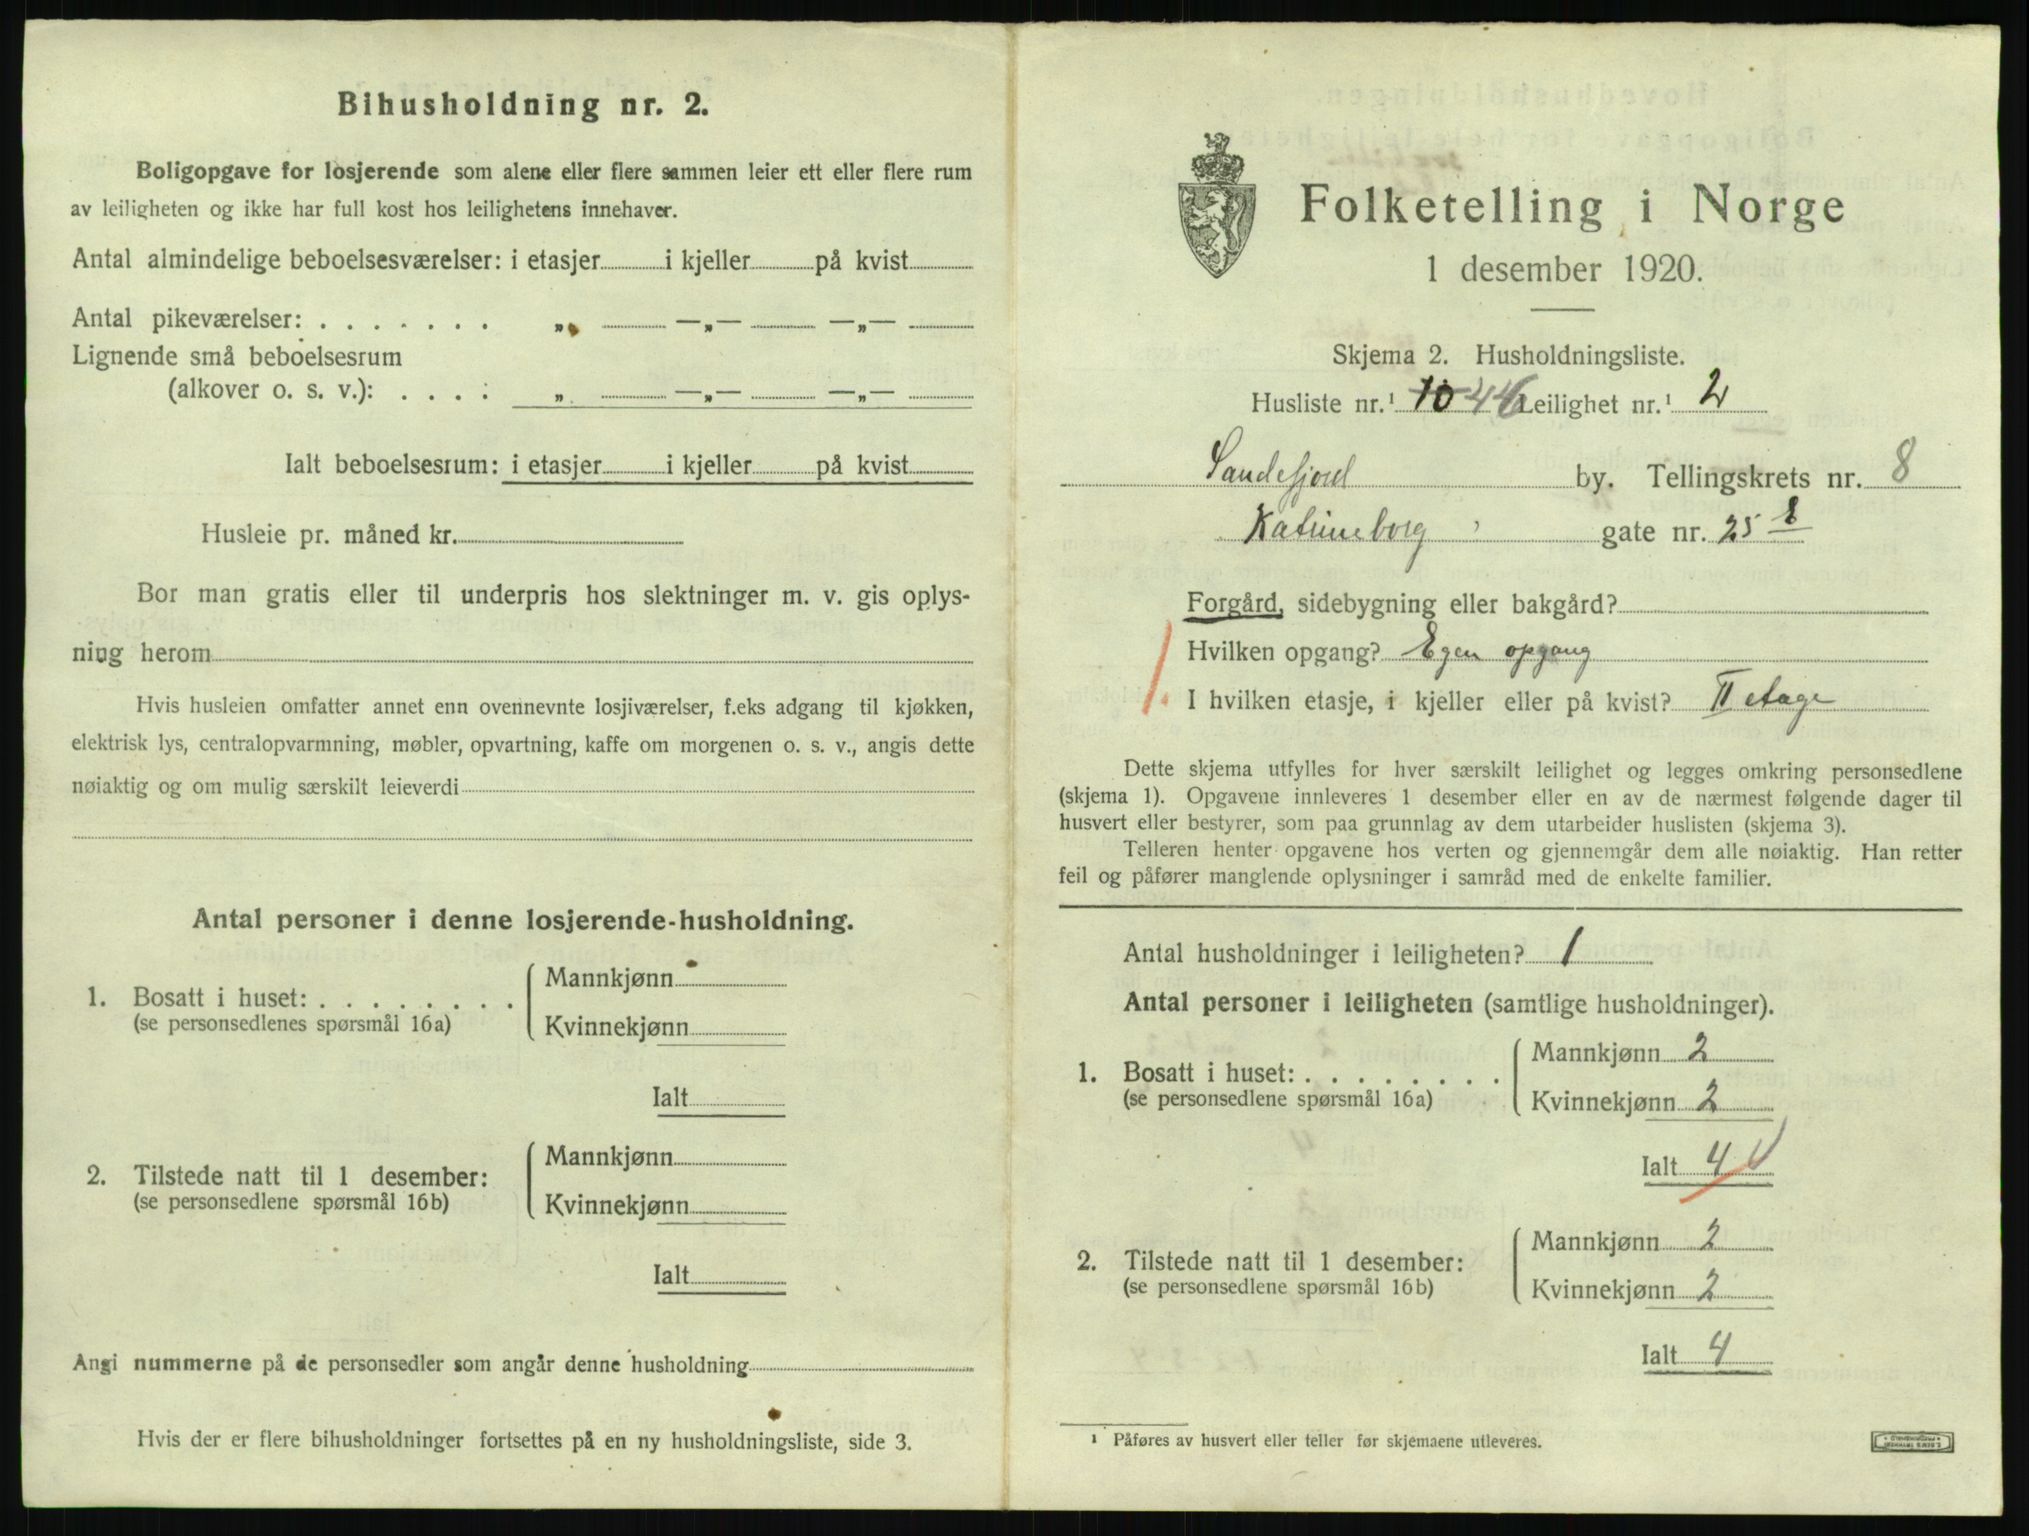 Bihusholdning nr. 2.
Boligopgave for losjerende som alene eller flere sammen leier ett eller flere rum
av leiligheten og ikke har full kost hos leilighetens innehaver.
Antal almindelige beboelsesværelser: i etasjer i kjeller på kvist
Antal pikeværelser: . . . . . . . „ —„— —„—
Lignende små beboelsesrum
(alkover o. s. v.): . . . . „ —„— —„—
Ialt beboelsesrum: i etasjer i kjeller på kvist
Husleie pr. måned kr.
Bor man gratis eller til underpris hos slektninger m. v. gis oplys-
ning herom
Hvis husleien omfatter annet enn ovennevnte losjiværelser, f.eks adgang til kjøkken,
elektrisk lys, centralopvarmning, møbler, opvartning, kaffe om morgenen o. s. v., angis dette
nøiaktig og om mulig særskilt leieverdi
Antal personer i denne losjerende-husholdning.
1. Bosatt i huset: . . . . . . . . Mannkjønn
(se personsedlenes spørsmål 16a) Kvinnekjønn
Ialt
2. Tilstede natt til 1 desember: Mannkjønn
(se personsedlene spørsmål 16b) Kvinnekjønn
Ialt
Angi nummerne på de personsedler som angår denne husholdning
Hvis der er flere bihusholdninger fortsettes på en ny husholdningsliste, side 3.
Folketelling i Norge
1 desember 1920.
Skjema 2. Husholdningsliste.
Husliste nr.¹ 10 44 Leilighet nr.¹ 2
Sandefjord by. Tellingskrets nr. 8
gate nr. 25
Forgård, sidebygning eller bakgård?
Hvilken opgang? Egen opgang
I hvilken etasje, i kjeller eller på kvist? II etage
Dette skjema utfylles for hver særskilt leilighet og legges omkring personsedlene
(skjema 1). Opgavene innleveres 1 desember eller en av de nærmest følgende dager til
husvert eller bestyrer, som paa grunnlag av dem utarbeider huslisten (skjema 3).
Telleren henter opgavene hos verten og gjennemgår dem alle nøiaktig. Han retter
feil og påfører manglende oplysninger i samråd med de enkelte familier.
Antal husholdninger i leiligheten? 1
Antal personer i leiligheten (samtlige husholdninger).
1. Bosatt i huset: . . . . . . . . Mannkjønn 2
(se personsedlene spørsmål 16a) Kvinnekjønn 2
Ialt 4
2. Tilstede natt til 1 desember: Mannkjønn 2
(se personsedlene spørsmål 16b) Kvinnekjønn 2
Ialt 4
¹ Påføres av husvert eller teller før skjemaene utleveres.